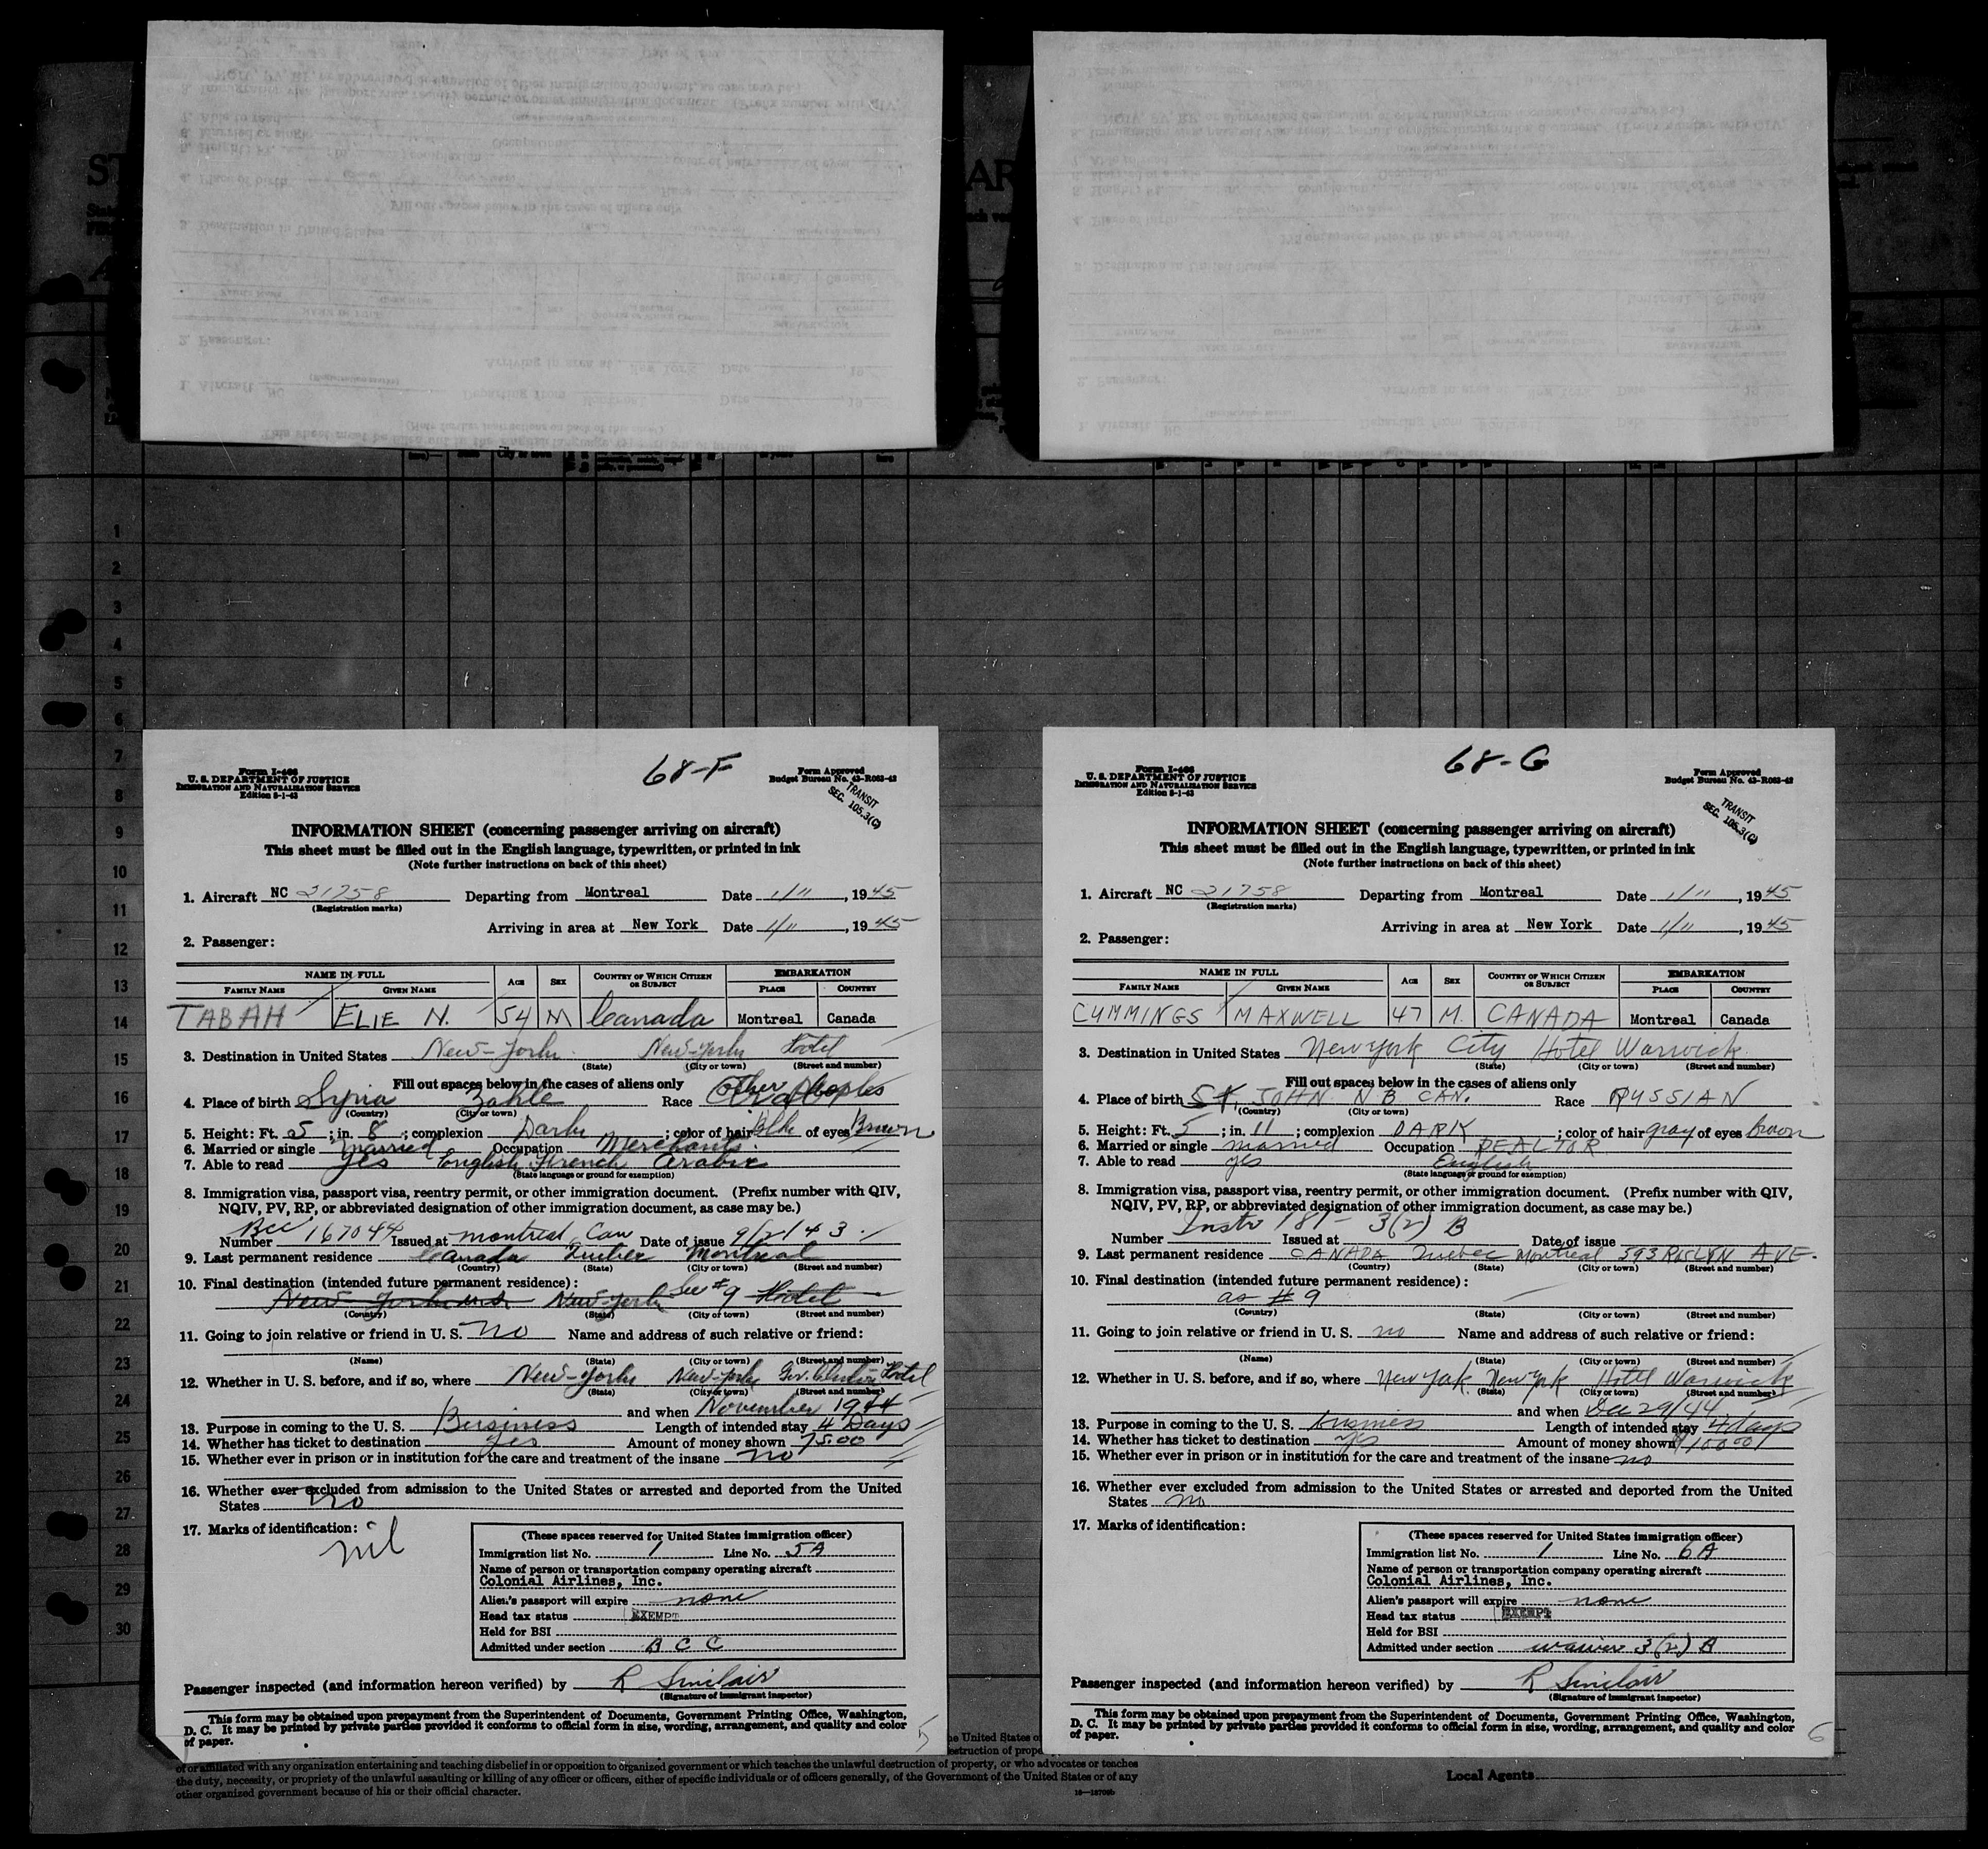 68-F
Form I-466
U. S. DEPARTMENT OF JUSTICE
IMMIGRATION AND NATURALIZATION SERVICE
Edition 5-1-43
Form Approved
Budget Bureau No. 43-R063-42
TRANSIT
SEC. 105.3(C)
INFORMATION SHEET (concerning passenger arriving on aircraft)
This sheet must be filled out in the English language, typewritten, or printed in ink
(Note further instructions on back of this sheet)
1. Aircraft NC 21758 Departing from Montreal Date 1/11, 1945
(Registration marks)
Arriving in area at New York Date 1/11, 1945
2. Passenger:
NAME IN FULL AGE SEX COUNTRY OF WHICH CITIZEN OR SUBJECT EMBARKATION
FAMILY NAME GIVEN NAME PLACE COUNTRY
TABAH ELIE N. 54 M Canada Montreal Canada
3. Destination in United States New-York New-York Hotel
(State) (City or town) (Street and number)
Fill out spaces below in the cases of aliens only
4. Place of birth Syria Zahle Race Other Peoples
(Country) (City or town)
5. Height: Ft. 5; in. 8; complexion Dark; color of hair Blk of eyes Brown
6. Married or single Married Occupation Merchant
7. Able to read Yes English French Arabic
(State language or ground for exemption)
8. Immigration visa, passport visa, reentry permit, or other immigration document. (Prefix number with QIV,
NQIV, PV, RP, or abbreviated designation of other immigration document, as case may be.)
Number BCC 167044 Issued at Montreal Can Date of issue 9/2/43
9. Last permanent residence Canada Quebec Montreal
(Country) (State) (City or town) (Street and number)
10. Final destination (intended future permanent residence):
New York New-York See #9 Hotel
(Country) (State) (City or town) (Street and number)
11. Going to join relative or friend in U. S. No Name and address of such relative or friend:
(Name) (State) (City or town) (Street and number)
12. Whether in U. S. before, and if so, where New-York New-York Gov. Clinton Hotel
(State) (City or town) (Street and number)
and when November 1944
13. Purpose in coming to the U. S. Business Length of intended stay 4 Days
14. Whether has ticket to destination Yes Amount of money shown 75.00
15. Whether ever in prison or in institution for the care and treatment of the insane No
16. Whether ever excluded from admission to the United States or arrested and deported from the United
States No
17. Marks of identification: nil
(These spaces reserved for United States immigration officer)
Immigration list No. 1 Line No. 5A
Name of person or transportation company operating aircraft
Colonial Airlines, Inc.
Alien's passport will expire none
Head tax status EXEMPT
Held for BSI
Admitted under section B C C
Passenger inspected (and information hereon verified) by R Sinclair
(Signature of immigrant inspector)
This form may be obtained upon prepayment from the Superintendent of Documents, Government Printing Office, Washington,
D. C. It may be printed by private parties provided it conforms to official form in size, wording, arrangement, and quality and color
of paper.
5
68-G
Form I-466
U. S. DEPARTMENT OF JUSTICE
IMMIGRATION AND NATURALIZATION SERVICE
Edition 5-1-43
Form Approved
Budget Bureau No. 43-R063-42
TRANSIT
SEC. 105.3(C)
INFORMATION SHEET (concerning passenger arriving on aircraft)
This sheet must be filled out in the English language, typewritten, or printed in ink
(Note further instructions on back of this sheet)
1. Aircraft NC 21758 Departing from Montreal Date 1/11, 1945
(Registration marks)
Arriving in area at New York Date 1/11, 1945
2. Passenger:
NAME IN FULL AGE SEX COUNTRY OF WHICH CITIZEN OR SUBJECT EMBARKATION
FAMILY NAME GIVEN NAME PLACE COUNTRY
CUMMINGS MAXWELL 47 M. CANADA Montreal Canada
3. Destination in United States New York City Hotel Warwick
(State) (City or town) (Street and number)
Fill out spaces below in the cases of aliens only
4. Place of birth St. JOHN N B CAN. Race RUSSIAN
(Country) (City or town)
5. Height: Ft. 5; in. 11; complexion DARK; color of hair gray of eyes brown
6. Married or single married Occupation REALTOR
7. Able to read yes English
(State language or ground for exemption)
8. Immigration visa, passport visa, reentry permit, or other immigration document. (Prefix number with QIV,
NQIV, PV, RP, or abbreviated designation of other immigration document, as case may be.)
Number Instr 181- 3(2) B Issued at Date of issue
9. Last permanent residence CANADA Quebec Montreal 593 ROSLYN AVE.
(Country) (State) (City or town) (Street and number)
10. Final destination (intended future permanent residence):
as # 9
(Country) (State) (City or town) (Street and number)
11. Going to join relative or friend in U. S. no Name and address of such relative or friend:
(Name) (State) (City or town) (Street and number)
12. Whether in U. S. before, and if so, where New York New York Hotel Warwick
(State) (City or town) (Street and number)
and when Dec 29/44
13. Purpose in coming to the U. S. business Length of intended stay 4 days
14. Whether has ticket to destination yes Amount of money shown $100.00
15. Whether ever in prison or in institution for the care and treatment of the insane no
16. Whether ever excluded from admission to the United States or arrested and deported from the United
States no
17. Marks of identification:
(These spaces reserved for United States immigration officer)
Immigration list No. 1 Line No. 6A
Name of person or transportation company operating aircraft
Colonial Airlines, Inc.
Alien's passport will expire none
Head tax status EXEMPT
Held for BSI
Admitted under section waiver 3(2) B
Passenger inspected (and information hereon verified) by R Sinclair
(Signature of immigrant inspector)
This form may be obtained upon prepayment from the Superintendent of Documents, Government Printing Office, Washington,
D. C. It may be printed by private parties provided it conforms to official form in size, wording, arrangement, and quality and color
of paper.
6
1
2
3
4
5
6
7
8
9
10
11
12
13
14
15
16
17
18
19
20
21
22
23
24
25
26
27
28
29
30
he United States o
estruction of prope
of or affiliated with any organization entertaining and teaching disbelief in or opposition to organized government or which teaches the unlawful destruction of property, or who advocates or teaches
the duty, necessity, or propriety of the unlawful assaulting or killing of any officer or officers, either of specific individuals or of officers generally, of the Government of the United States or of any
other organized government because of his or their official character.
Local Agents